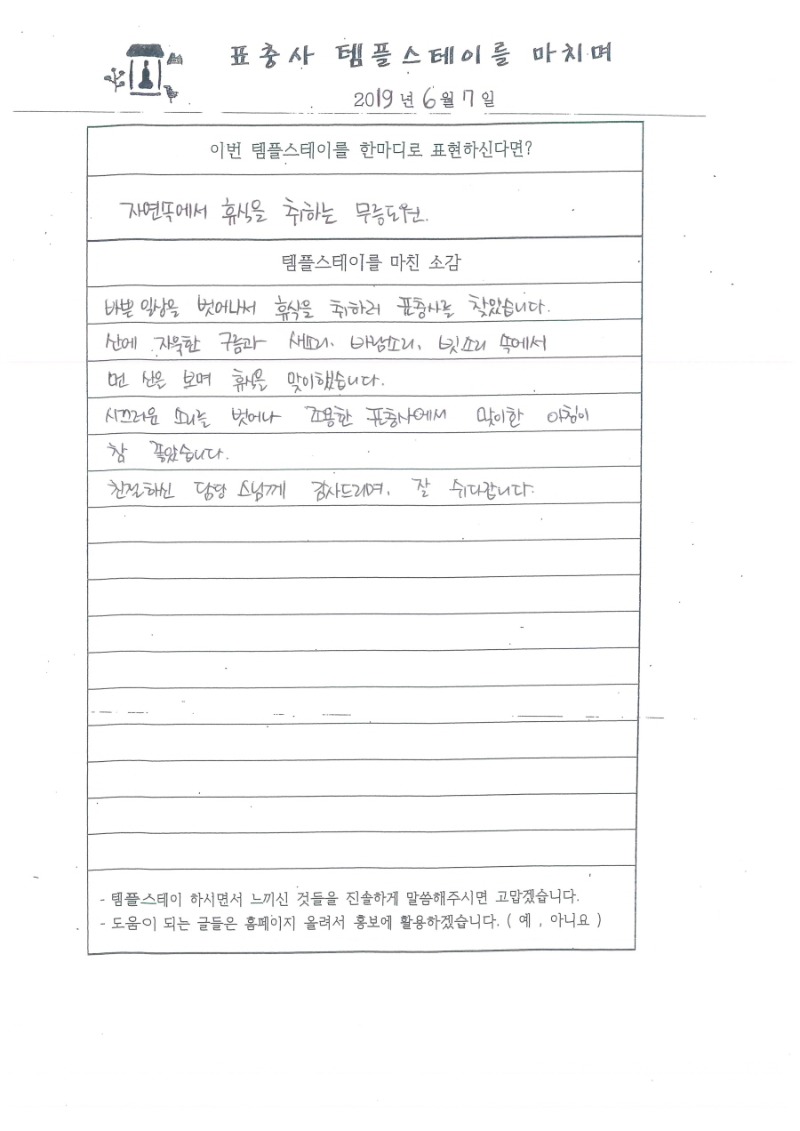 표충사 템플스테이를 마치며
2019년 6월 7일
이번 템플스테이를 한마디로 표현하신다면?
자연속에서 휴식을 취하는 무릉도원.
템플스테이를 마친 소감
바쁜 일상을 벗어나서 휴식을 취하러 표충사를 찾았습니다.
산에 자욱한 구름과 새소리, 바람소리, 빗소리 속에서
먼 산을 보며 휴식을 맞이했습니다.
시끄러운 소리를 벗어나 조용한 표충사에서 맞이한 아침이
참 좋았습니다.
친절하신 담당 스님께 감사드리며, 잘 쉬다갑니다.
- 템플스테이 하시면서 느끼신 것들을 진솔하게 말씀해주시면 고맙겠습니다.
- 도움이 되는 글들은 홈페이지 올려서 홍보에 활용하겠습니다. ( 예 , 아니요 )